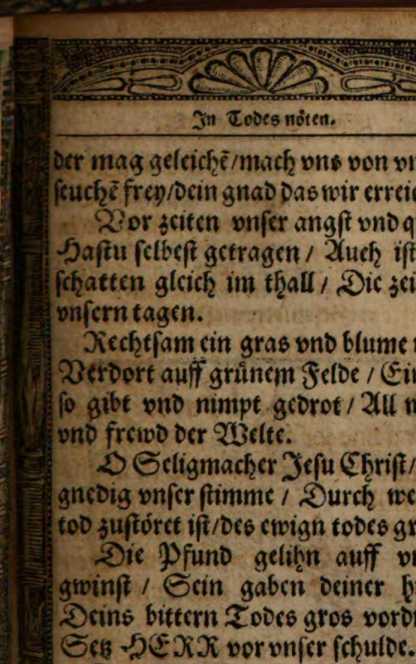 In Todes nöten.
der mag geleichẽ/mach vns von
seuchẽ frey/dein gnad das wir
Vor zeiten vnser angst vnd
Hastu selbest getragen / Auch
schatten gleich im thall / Die
vnsern tagen.
Rechtsam ein gras vnd blume
Verdort auff grünem Felde /
so gibt vnd nimpt gedrot / All
vnd frewd der Welte.
O Seligmacher Jesu Christ/
gnedig vnser stimme / Durch
tod zustöret ist/des ewign todes
Die Pfund gelihn auff
gwinst / Sein gaben deiner
Deins bittern Todes gros
Setz HERR vor vnser schulde.